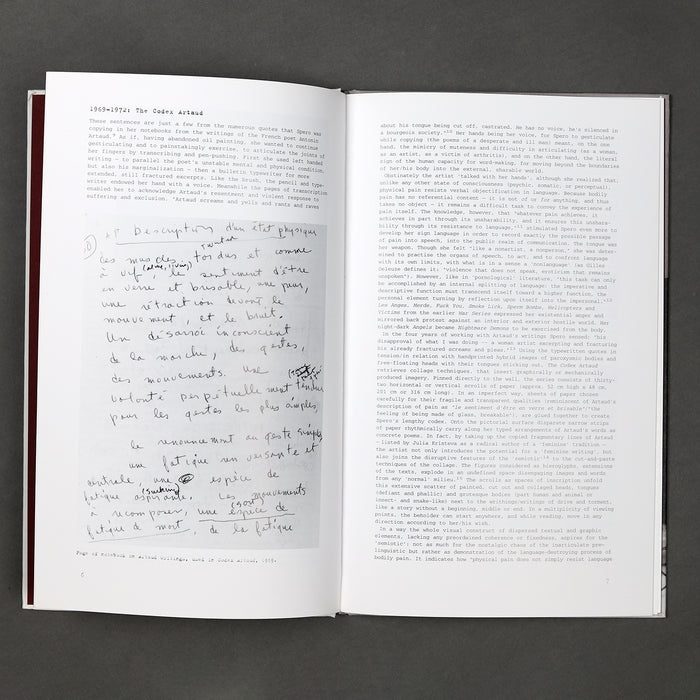 1969–1972: The Codex Artaud
These sentences are just a few from the numerous quotes that Spero was
copying in her notebooks from the writings of the French poet Antonin
Artaud. As if, having abandoned oil painting, she wanted to continue
gesticulating and to painstakingly exercise, to articulate the joints of
her fingers by transcribing and pen-pushing. First she used left handed
writing – to parallel the poet's unstable mental and physical condition,
but also his marginalization – then a bulletin typewriter for more
extended, still fractured excerpts. Like the brush, the pencil and type-
writer endowed her hand with a voice. Meanwhile the pages of transcription
enabled her to acknowledge Artaud's resentment and violent response to
suffering and exclusion. "Artaud screams and yells and rants and raves
Description d'un état physique
les muscles tordus et comme
à vif, le sentiment d'être
en verre et brisable, une peur,
une rétraction devant le
mouvement, et le bruit.
Un désarroi inconscient
de la marche, des gestes,
des mouvements. Une
volonté perpétuellement tendue
pour les gestes les plus simples,
le renoncement au geste simple,
une fatigue renversante et
centrale, une espèce de
(sucking)
fatigue aspirante. Les mouvements
(sort)
à recomposer, une espèce de
fatigue de mort, de la fatigue
Page of Notebook on Artaud writings, used in Codex Artaud, 1969.
6
about his tongue being cut off, castrated. He has no voice, he's silenced in
a bourgeois society." Her hands being her voice, for Spero to gesticulate
while copying the poems of a desperate and ill man meant, on the one
hand, the mimicry of muteness and difficulty in articulating (as a woman,
as an artist, as a victim of arthritis), and on the other hand, the literal
sign of the human capacity for word-making, for moving beyond the boundaries
of her/his body into the external, sharable world.
Obstinately the artist 'talked with her hands', although she realized that,
unlike any other state of consciousness (psychic, somatic, or perceptual),
physical pain resists verbal objectification in language. Because bodily
pain has no referential content – it is not of or for anything, and thus
takes no object – it remains a difficult task to convey the experience of
pain itself. The knowledge, however, that 'whatever pain achieves, it
achieves in part through its unsharability, and it ensures this unshara-
bility through its resistance to language,' stimulated Spero even more to
develop her sign language in order to record exactly the possible passage
of pain into speech, into the public realm of communication. The tongue was
her weapon. Though she felt "like a nonartist, a nonperson," she was deter-
mined to practise the organs of speech, to act, and to confront language
with its own limits, with what is in a sense a 'nonlanguage' (as Gilles
Deleuze defines it: 'violence that does not speak, eroticism that remains
unspoken'). However, like in 'pornological literature,' 'this task can only
be accomplished by an internal splitting of language: the imperative and
descriptive function must transcend itself toward a higher function, the
personal element turning by reflection upon itself into the impersonal.'
Les Anges, Merde, Fuck You, Smoke Lick, Sperm Bombs, Helicopters and
Victims from the earlier War Series expressed her existential anger and
mirrored back protest against an interior and exterior hostile war. Her
night-dark Angels became Nightmare Demons to be exorcised from the body.
In the four years of working with Artaud's writings Spero sensed; "his
disapproval of what I was doing – a woman artist excerpting and fracturing
his already fractured screams and pleas." Using the typewritten quotes in
tension/in relation with handprinted hybrid images of paroxysmic bodies and
free-floating heads with their tongues sticking out, The Codex Artaud
retrieves collage techniques, that insert graphically or mechanically
produced imagery. Pinned directly to the wall, the series consists of thirty-
two horizontal or vertical scrolls of paper (approx. 52 cm high x 48 cm,
201 cm or 316 cm long). In an imperfect way, sheets of paper chosen
carefully for their fragile and transparent qualities (reminiscent of Artaud's
description of pain as 'le sentiment d'être en verre et brisable'('the
feeling of being made of glass, breakable'), are glued together to create
Spero's lengthy codex. Onto the pictorial surface disparate narrow strips
of paper rhythmically carry along her typed arrangements of Artaud's words as
concrete poems. In fact, by taking up the copied fragmentary lines of Artaud
– listed by Julia Kristeva as a radical author of a 'feminine' tradition –
the artist not only introduces the potential for a 'feminine writing', but
also joins the disruptive features of the 'semiotic' to the cut-and-paste
techniques of the collage. The figures considered as hieroglyphs, extensions
of the texts, explode in an undefined space disengaging images and words
from any 'normal' milieu. The scrolls as spaces of inscription unfold
this extensive scatter of painted, cut out and collaged heads, tongues
(defiant and phallic) and grotesque bodies (part human and animal or
insect- and snake-like) next to the writhings/writings of drive and torment,
like a story without a beginning, middle or end. In a multiplicity of viewing
points, the beholder can start anywhere, and while reading, move in any
direction according to her/his wish.
In a way the whole visual construct of dispersed textual and graphic
elements, lacking any preordained coherence or fixedness, aspires for the
'semiotic': not as much for the nostalgic chaos of the inarticulate pre-
linguistic but rather as demonstration of the language-destroying process of
bodily pain. It indicates how "physical pain does not simply resist language
7